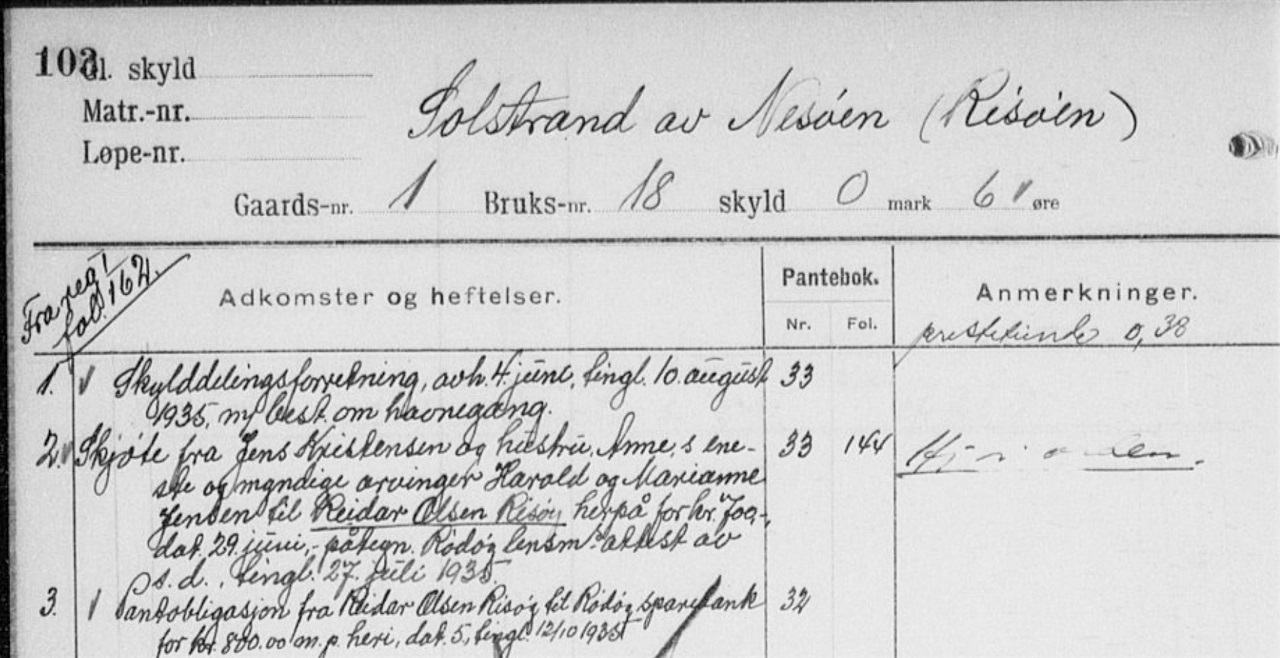 103
Gl. skyld
Matr.-nr.
Løpe-nr.
Solstrand av Nesøen (Risøen)
Gaards-nr. 1 Bruks-nr. 18 skyld 0 mark 6 øre
Fra reg 1
fol. 162.
Adkomster og heftelser.
Pantebok.
Nr. Fol.
Anmerkninger.
prestetiende 0,38
1. Skylddelingsforretning, avh. 4. juni, tingl. 10. august 33
1935, m/ best. om havnegang.
2. Skjøte fra Jens Kristensen og hustru Anne, s ene- 33 144
ste og myndige arvinger Harald og Marianne
Jensen til Reidar Olsen Risøy herpå for kr. 700,-,
dat. 29. juni, påtegn. Rødøy lensm. attest av
s. d., tingl. 27. juli 1935.
3. Pantobligasjon fra Reidar Olsen Risøy til Rødøy sparebank 32
for kr. 800.00 m. p. heri, dat. 5, tingl. 12/10 1935